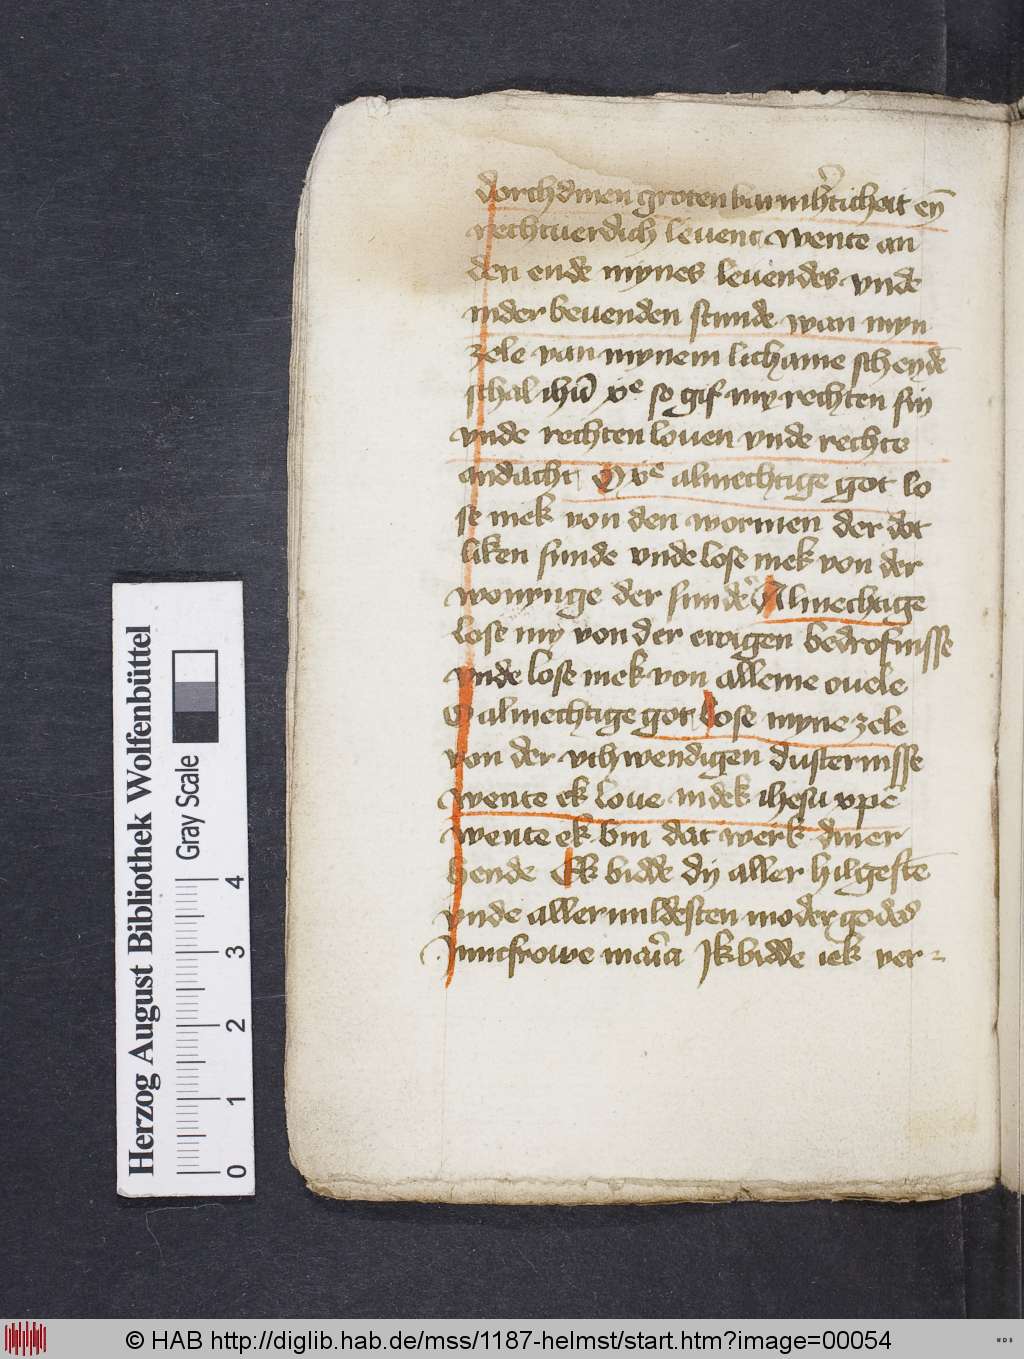 dorch dinen groten barmh'ticheit eȳ
rechtuerdich leuent wente an
den ende mynes leuendes vnde
in der beuenden stunde wan myn
zele van mynem lichame scheydē
schal ihū xpe so gif my rechten sin
vnde rechten louen vnde rechte
andacht O xpe almechtige got lo
se mek von den wormen der dot
liken sunde vnde lose mek von der
wonynge der sunder Almechtige
lose my von der ewigen bedrofnisse
vnde lose mek von alleme ouele
O almechtige got lose myne zele
von der vthwendigen dusternisse
wente ek loue in dek ihesu xpe
wente ek bin dat werk diner
hende Ek bidde dy aller hilgestē
vnde aller mildesten moder godes
Juncfrowe maria Jk bidde iek ver=
Herzog August Bibliothek Wolfenbüttel
Gray Scale
0 1 2 3 4
© HAB http://diglib.hab.de/mss/1187-helmst/start.htm?image=00054
WDB